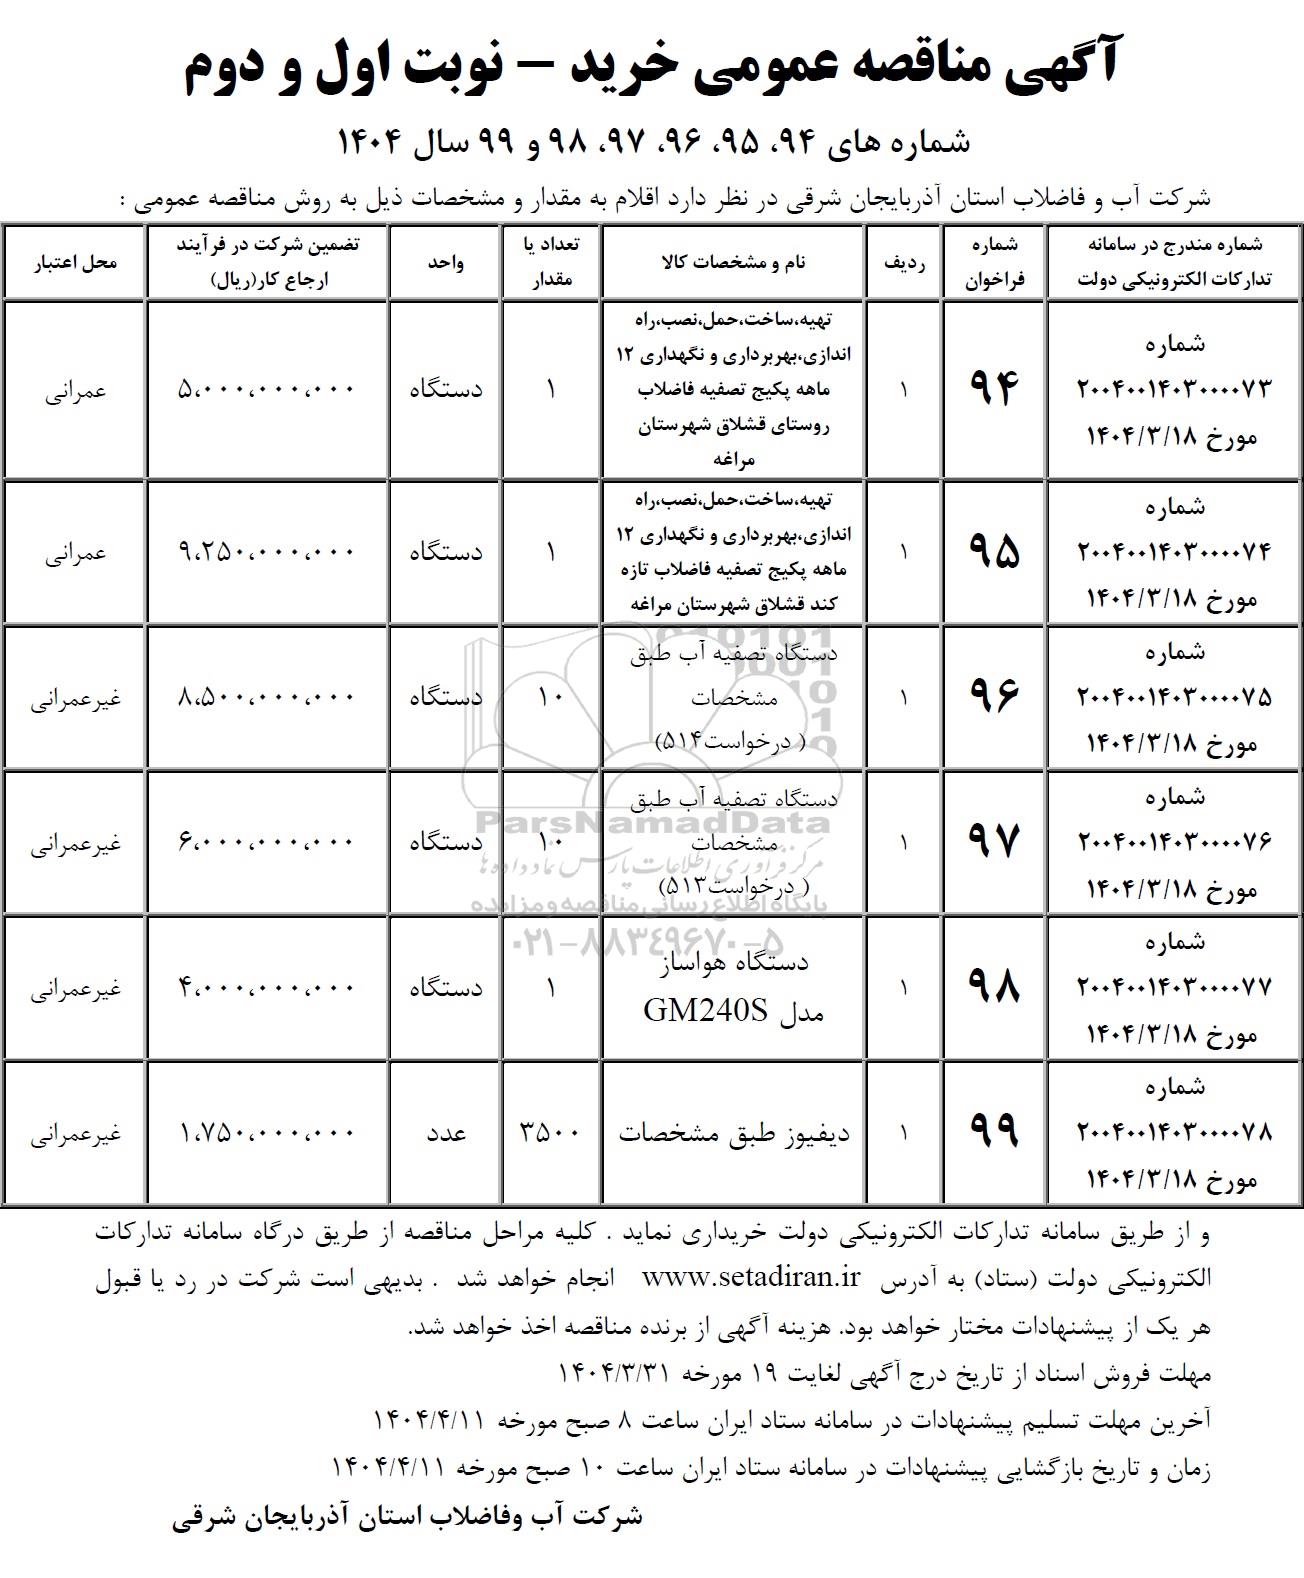 آگهی مناقصه عمومی خرید – نوبت اول و دوم
شماره های ۹۴، ۹۵، ۹۶، ۹۷، ۹۸ و ۹۹ سال ۱۴۰۴
شرکت آب و فاضلاب استان آذربایجان شرقی در نظر دارد اقلام به مقدار و مشخصات ذیل به روش مناقصه عمومی :
شماره مندرج در سامانه
تدارکات الکترونیکی دولت
شماره
فراخوان
ردیف
نام و مشخصات کالا
تعداد یا
مقدار
واحد
تضمین شرکت در فرآیند
ارجاع کار(ریال)
محل اعتبار
شماره
۲۰۰۴۰۰۱۴۰۳۰۰۰۰۷۳
مورخ ۱۴۰۴/۳/۱۸
۹۴
۱
تهیه،ساخت،حمل،نصب،راه
اندازی،بهربرداری و نگهداری ۱۲
ماهه پکیج تصفیه فاضلاب
روستای قشلاق شهرستان
مراغه
۱
دستگاه
۵،۰۰۰،۰۰۰،۰۰۰
عمرانی
شماره
۲۰۰۴۰۰۱۴۰۳۰۰۰۰۷۴
مورخ ۱۴۰۴/۳/۱۸
۹۵
۱
تهیه،ساخت،حمل،نصب،راه
اندازی،بهربرداری و نگهداری ۱۲
ماهه پکیج تصفیه فاضلاب تازه
کند قشلاق شهرستان مراغه
۱
دستگاه
۹،۲۵۰،۰۰۰،۰۰۰
عمرانی
شماره
۲۰۰۴۰۰۱۴۰۳۰۰۰۰۷۵
مورخ ۱۴۰۴/۳/۱۸
۹۶
۱
دستگاه تصفیه آب طبق
مشخصات
( درخواست۵۱۴)
۱۰
دستگاه
۸،۵۰۰،۰۰۰،۰۰۰
غیرعمرانی
شماره
۲۰۰۴۰۰۱۴۰۳۰۰۰۰۷۶
مورخ ۱۴۰۴/۳/۱۸
۹۷
۱
دستگاه تصفیه آب طبق
مشخصات
( درخواست۵۱۳)
۱۰
دستگاه
۶،۰۰۰،۰۰۰،۰۰۰
غیرعمرانی
ParsNamadData
مرکز فرآوری اطلاعات پارس نماد داده ها
پایگاه اطلاع رسانی مناقصه و مزایده
۰۲۱-۸۸۳۴۹۶۷۰-۵
شماره
۲۰۰۴۰۰۱۴۰۳۰۰۰۰۷۷
مورخ ۱۴۰۴/۳/۱۸
۹۸
۱
دستگاه هواساز
مدل GM240S
۱
دستگاه
۴،۰۰۰،۰۰۰،۰۰۰
غیرعمرانی
شماره
۲۰۰۴۰۰۱۴۰۳۰۰۰۰۷۸
مورخ ۱۴۰۴/۳/۱۸
۹۹
۱
دیفیوز طبق مشخصات
۳۵۰۰
عدد
۱،۷۵۰،۰۰۰،۰۰۰
غیرعمرانی
و از طریق سامانه تدارکات الکترونیکی دولت خریداری نماید . کلیه مراحل مناقصه از طریق درگاه سامانه تدارکات
الکترونیکی دولت (ستاد) به آدرس www.setadiran.ir انجام خواهد شد . بدیهی است شرکت در رد یا قبول
هر یک از پیشنهادات مختار خواهد بود. هزینه آگهی از برنده مناقصه اخذ خواهد شد.
مهلت فروش اسناد از تاریخ درج آگهی لغایت ۱۹ مورخه ۱۴۰۴/۳/۳۱
آخرین مهلت تسلیم پیشنهادات در سامانه ستاد ایران ساعت ۸ صبح مورخه ۱۴۰۴/۴/۱۱
زمان و تاریخ بازگشایی پیشنهادات در سامانه ستاد ایران ساعت ۱۰ صبح مورخه ۱۴۰۴/۴/۱۱
شرکت آب وفاضلاب استان آذربایجان شرقی